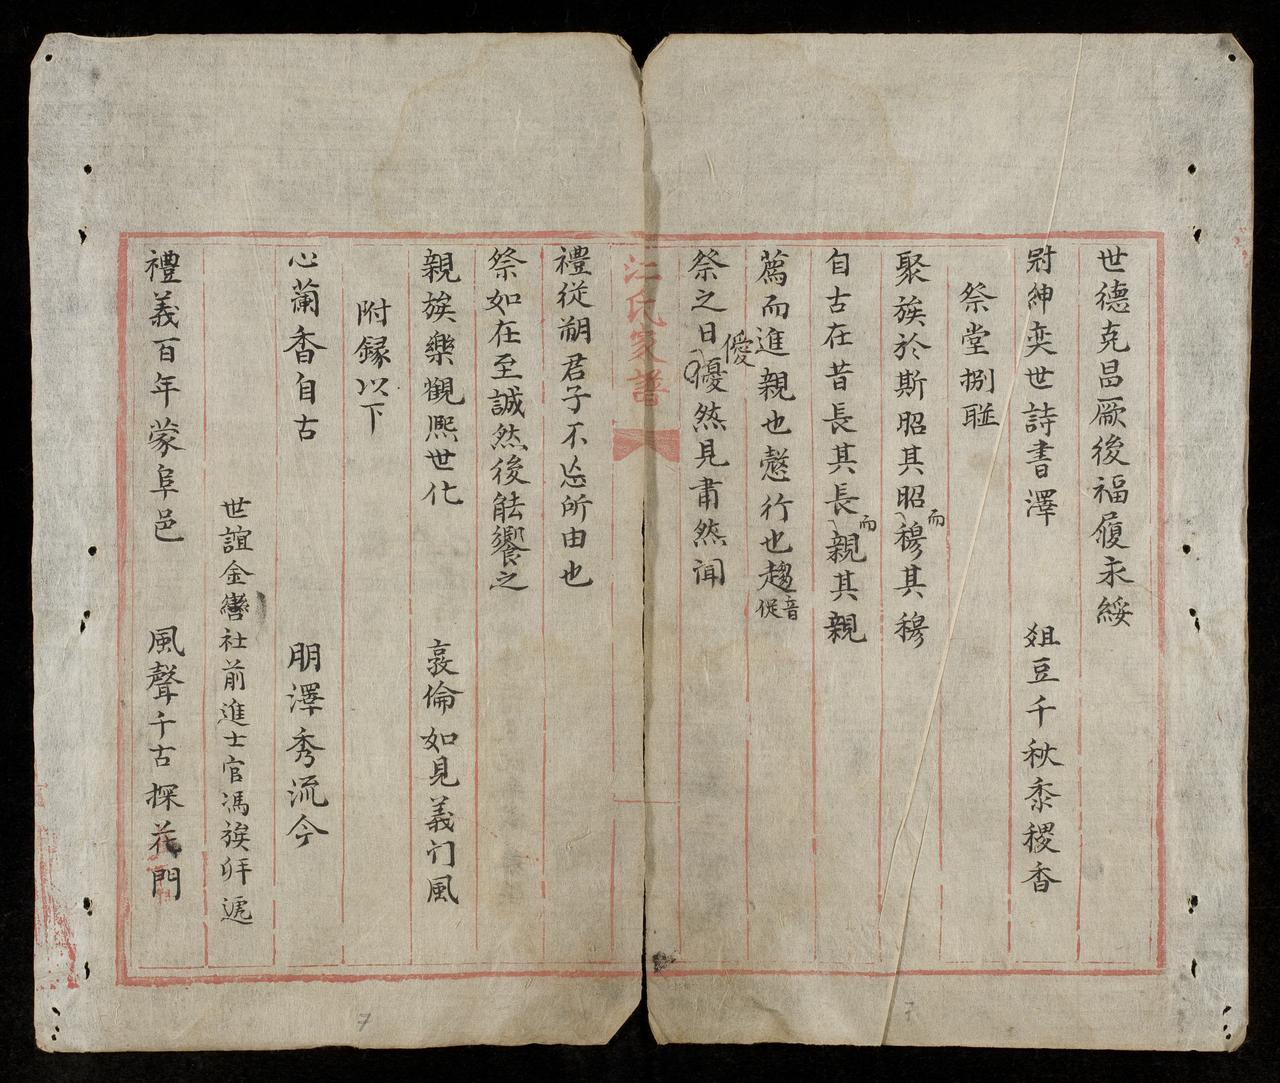 世德克昌厥後福履永綏
冠紳奕世詩書澤 俎豆千秋黍稷香
祭堂捌聯
聚族於斯昭其昭而穆其穆
自古在昔長其長而親其親
薦而進親也愨行也趨音促
祭之日優然見肅然聞
僾
江氏家譜
禮從朔君子不忘所由也
祭如在至誠然後能饗之
親族樂觀熙世化 敦倫如見義门風
附録以下
心蘭香自古 朋澤秀流今
世誼金巒社前進士官馮族拜遞
禮義百年蒙阜邑 風聲千古探花門
7
7